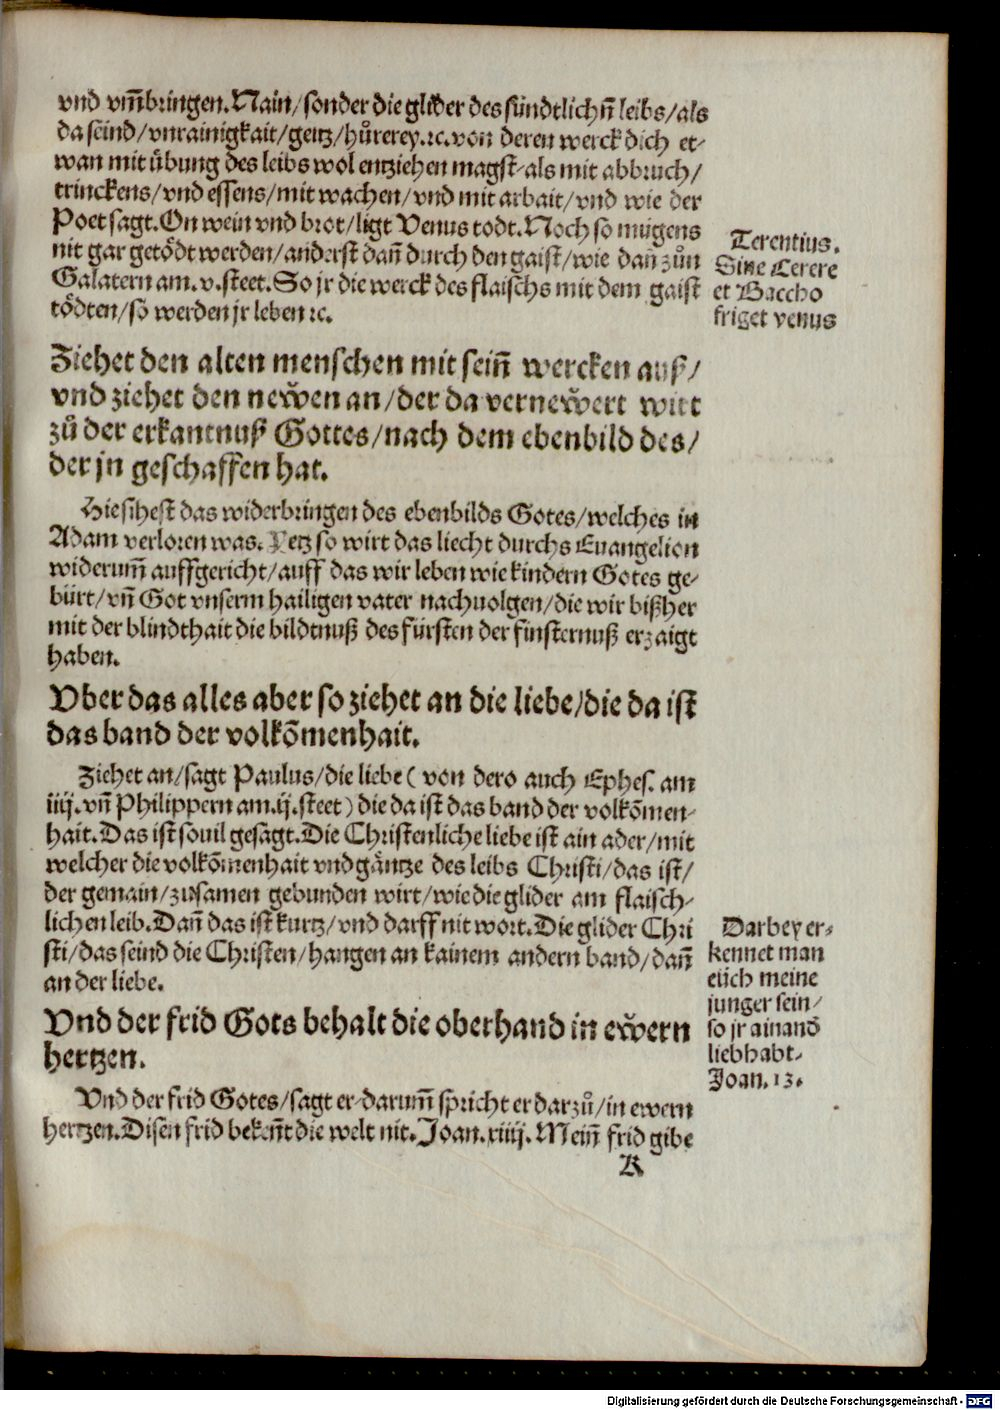 vnd vm̃bringen. Nain/ sonder die glider des sündtlichñ leibs/ als
da seind/ vnrainigkait/ geitz/ hůrerey. ꝛc. von deren werck dich et-
wan mit übung des leibs wol entziehen magst/ als mit abbruch/
trinckens/ vnd essens/ mit wachen/ vnd mit arbait/ vnd wie der
Poet sagt. On wein vnd brot/ ligt Venus todt. Noch so mügens
nit gar getödt werden/ anderst dañ durch den gaist/ wie dañ zůn
Galatern am. v. steet. So jr die werck des flaischs mit dem gaist
tödten/ so werden jr leben ꝛc.
Terentius.
Sine Cerere
et Baccho
friget venus
Ziehet den alten menschen mit seiñ wercken auß/
vnd ziehet den neẅen an/ der da verneẅert wirt
zů der erkantnuß Gottes/ nach dem ebenbild des/
der jn geschaffen hat.
Hie sihest das widerbringen des ebenbilds Gotes/ welches in
Adam verloren was. Yetz so wirt das liecht durchs Euangelion
widerum̃ auffgericht/ auff das wir leben wie kindern Gotes ge-
bürt/ vñ Got vnserm hailigen vater nachuolgen/ die wir bißher
mit der blindthait die bildtnuß des fürsten der finsternuß erzaigt
haben.
Vber das alles aber so ziehet an die liebe/ die da ist
das band der volkõmenhait.
Ziehet an/ sagt Paulus/ die liebe ( von dero auch Ephes. am
iiij. vñ Philippern am. ij. steet ) die da ist das band der volkõmen-
hait. Das ist souil gesagt. Die Christenliche liebe ist ain ader/ mit
welcher die volkõmenhait vnd gäntze des leibs Christi/ das ist/
der gemain/ zusamen gebunden wirt/ wie die glider am flaisch-
lichen leib. Dañ das ist kurtz/ vnd darff nit wort. Die glider Chri
sti/ das seind die Christen/ hangen an kainem andern band/ dañ
an der liebe.
Darbey er-
kennet man
eüch meine
junger sein/
so jr ainand̃
liebhabt.
Joan. 13.
Vnd der frid Gots behalt die oberhand in eẅern
hertzen.
Vnd der frid Gotes/ sagt er/ darum̃ spricht er darzů/ in ewern
hertzen. Disen frid bekeñt die welt nit. Joan. xiiij. Meiñ frid gibe
K
Digitalisierung gefördert durch die Deutsche Forschungsgemeinschaft - DFG